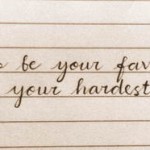 be your fav
your hardest